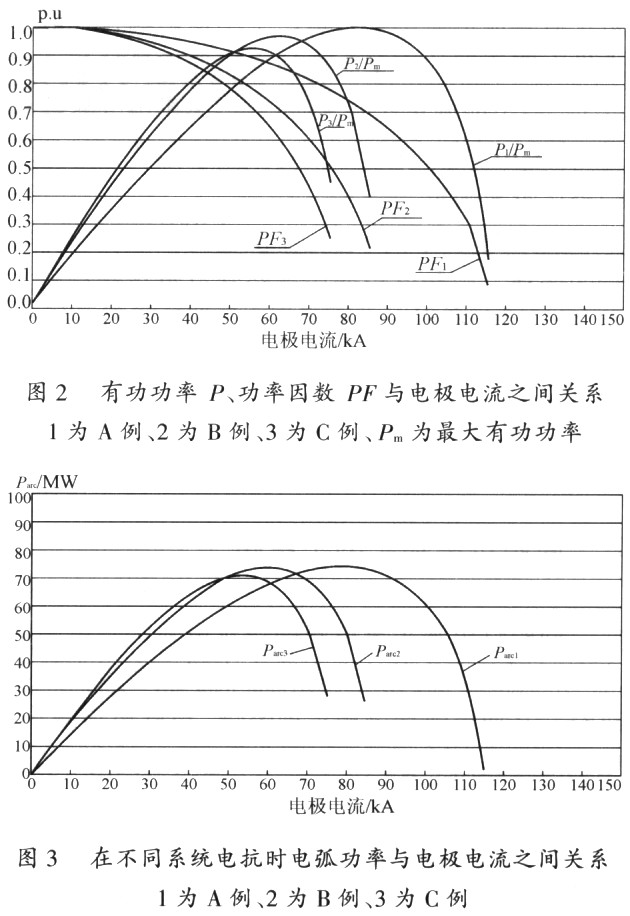 p.u
1.0
0.9
0.8
0.7
0.6
0.5
0.4
0.3
0.2
0.1
0.0
P2/Pm
P3/Pm
P1/Pm
PF2
PF3
PF1
0 10 20 30 40 50 60 70 80 90 100 110 120 130 140 150
电极电流/kA
图 2 有功功率 P、功率因数 PF 与电极电流之间关系
1 为 A 例、2 为 B 例、3 为 C 例、Pm 为最大有功功率
Parc/MW
100
90
80
70
60
50
40
30
20
10
0
Parc3
Parc2
Parc1
0 10 20 30 40 50 60 70 80 90 100 110 120 130 140 150
电极电流/kA
图 3 在不同系统电抗时电弧功率与电极电流之间关系
1 为 A 例、2 为 B 例、3 为 C 例